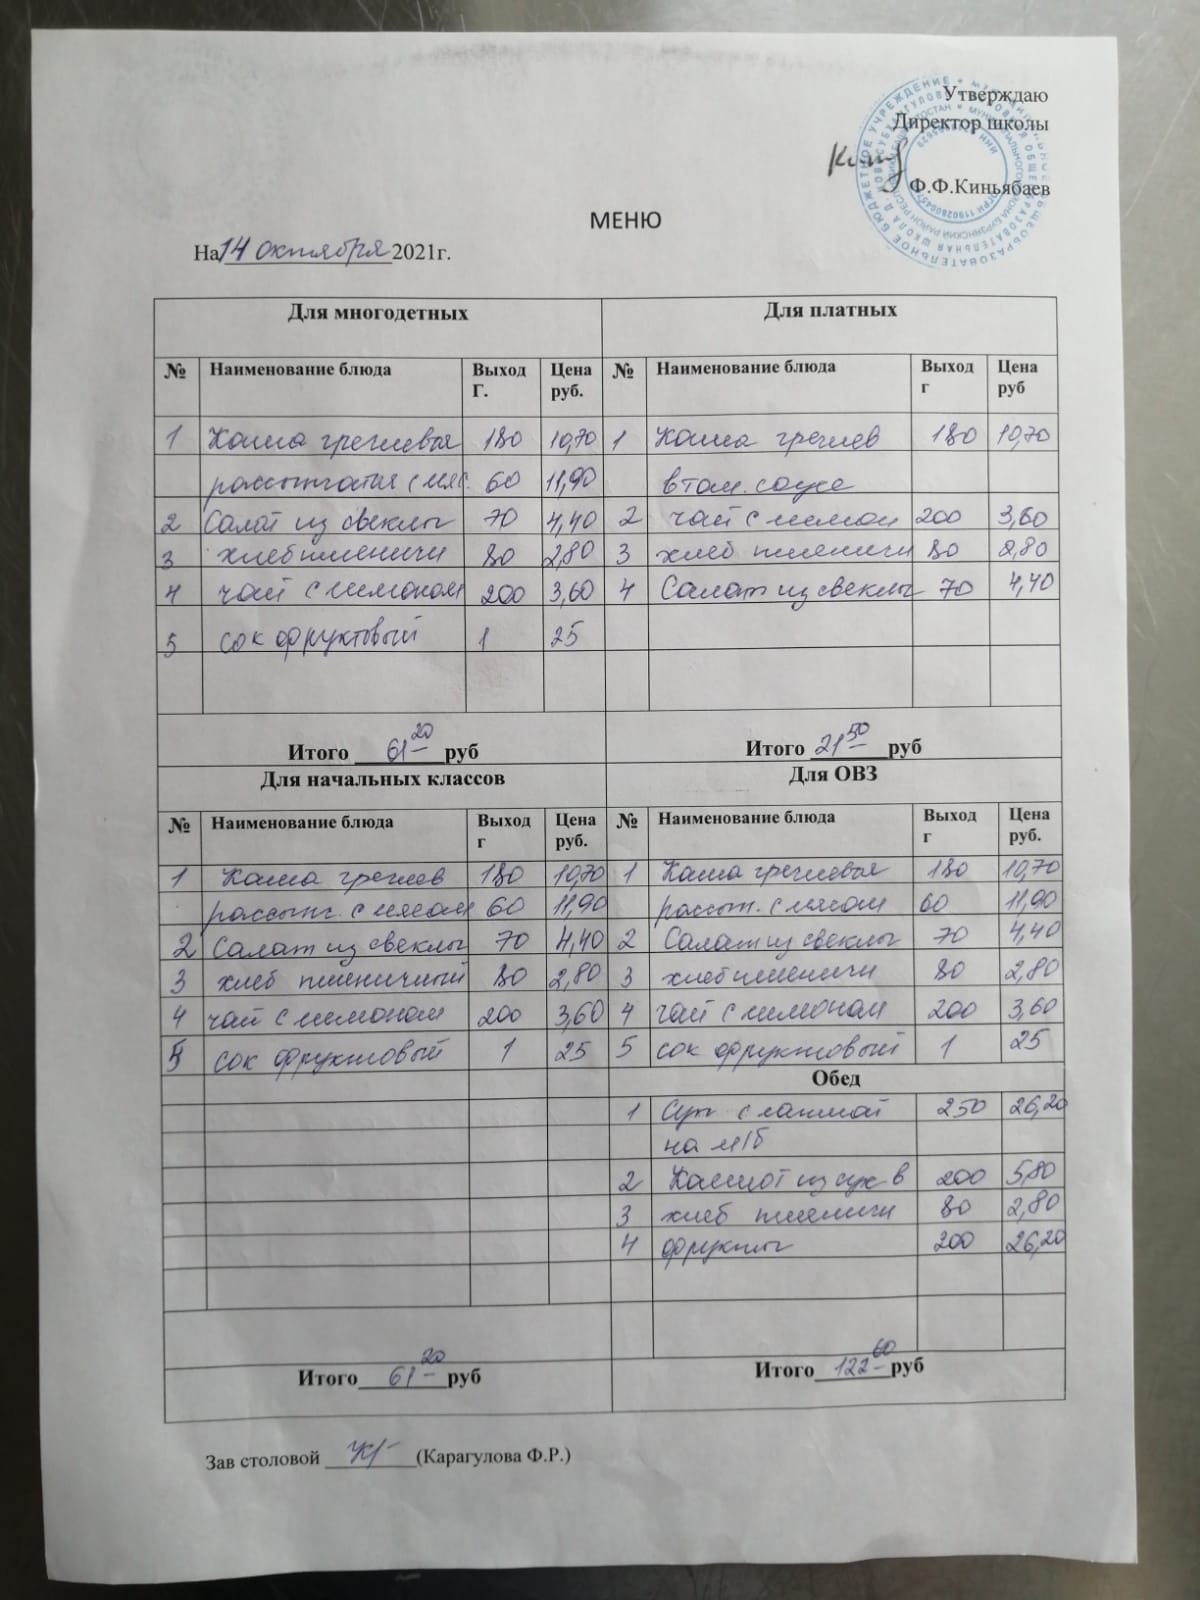 Утверждаю
Директор школы
Ф.Ф.Киньябаев
МЕНЮ
На 14 октября 2021г.
Для многодетных Для платных
№ Наименование блюда Выход Г. Цена руб. № Наименование блюда Выход г Цена руб
1 Каша гречневая 180 10,70 1 Каша гречнев 180 10,70
рассыпчатая с мяс. 60 11,90 в том. соусе
2 Салат из свеклы 70 4,40 2 чай с лимон 200 3,60
3 хлеб пшеничн 80 2,80 3 хлеб пшеничн 80 2,80
4 чай с лимоном 200 3,60 4 Салат из свеклы 70 4,40
5 сок фруктовый 1 25
Итого 61-20 руб Итого 21-50 руб
Для начальных классов Для ОВЗ
№ Наименование блюда Выход г Цена руб. № Наименование блюда Выход г Цена руб.
1 Каша гречнев 180 10,70 1 Каша гречневая 180 10,70
рассып. с мясом 60 11,90 рассып. с мясом 60 11,90
2 Салат из свеклы 70 4,40 2 Салат из свеклы 70 4,40
3 хлеб пшеничный 80 2,80 3 хлеб пшеничн 80 2,80
4 чай с лимоном 200 3,60 4 чай с лимоном 200 3,60
5 сок фруктовый 1 25 5 сок фруктовый 1 25
Обед
1 Суп с лапшой 250 26,20
на м/б
2 Компот из сух в 200 5,80
3 хлеб пшеничн 80 2,80
4 фрукты 200 26,20
Итого 61-20 руб Итого 122-60 руб
Зав столовой (Карагулова Ф.Р.)